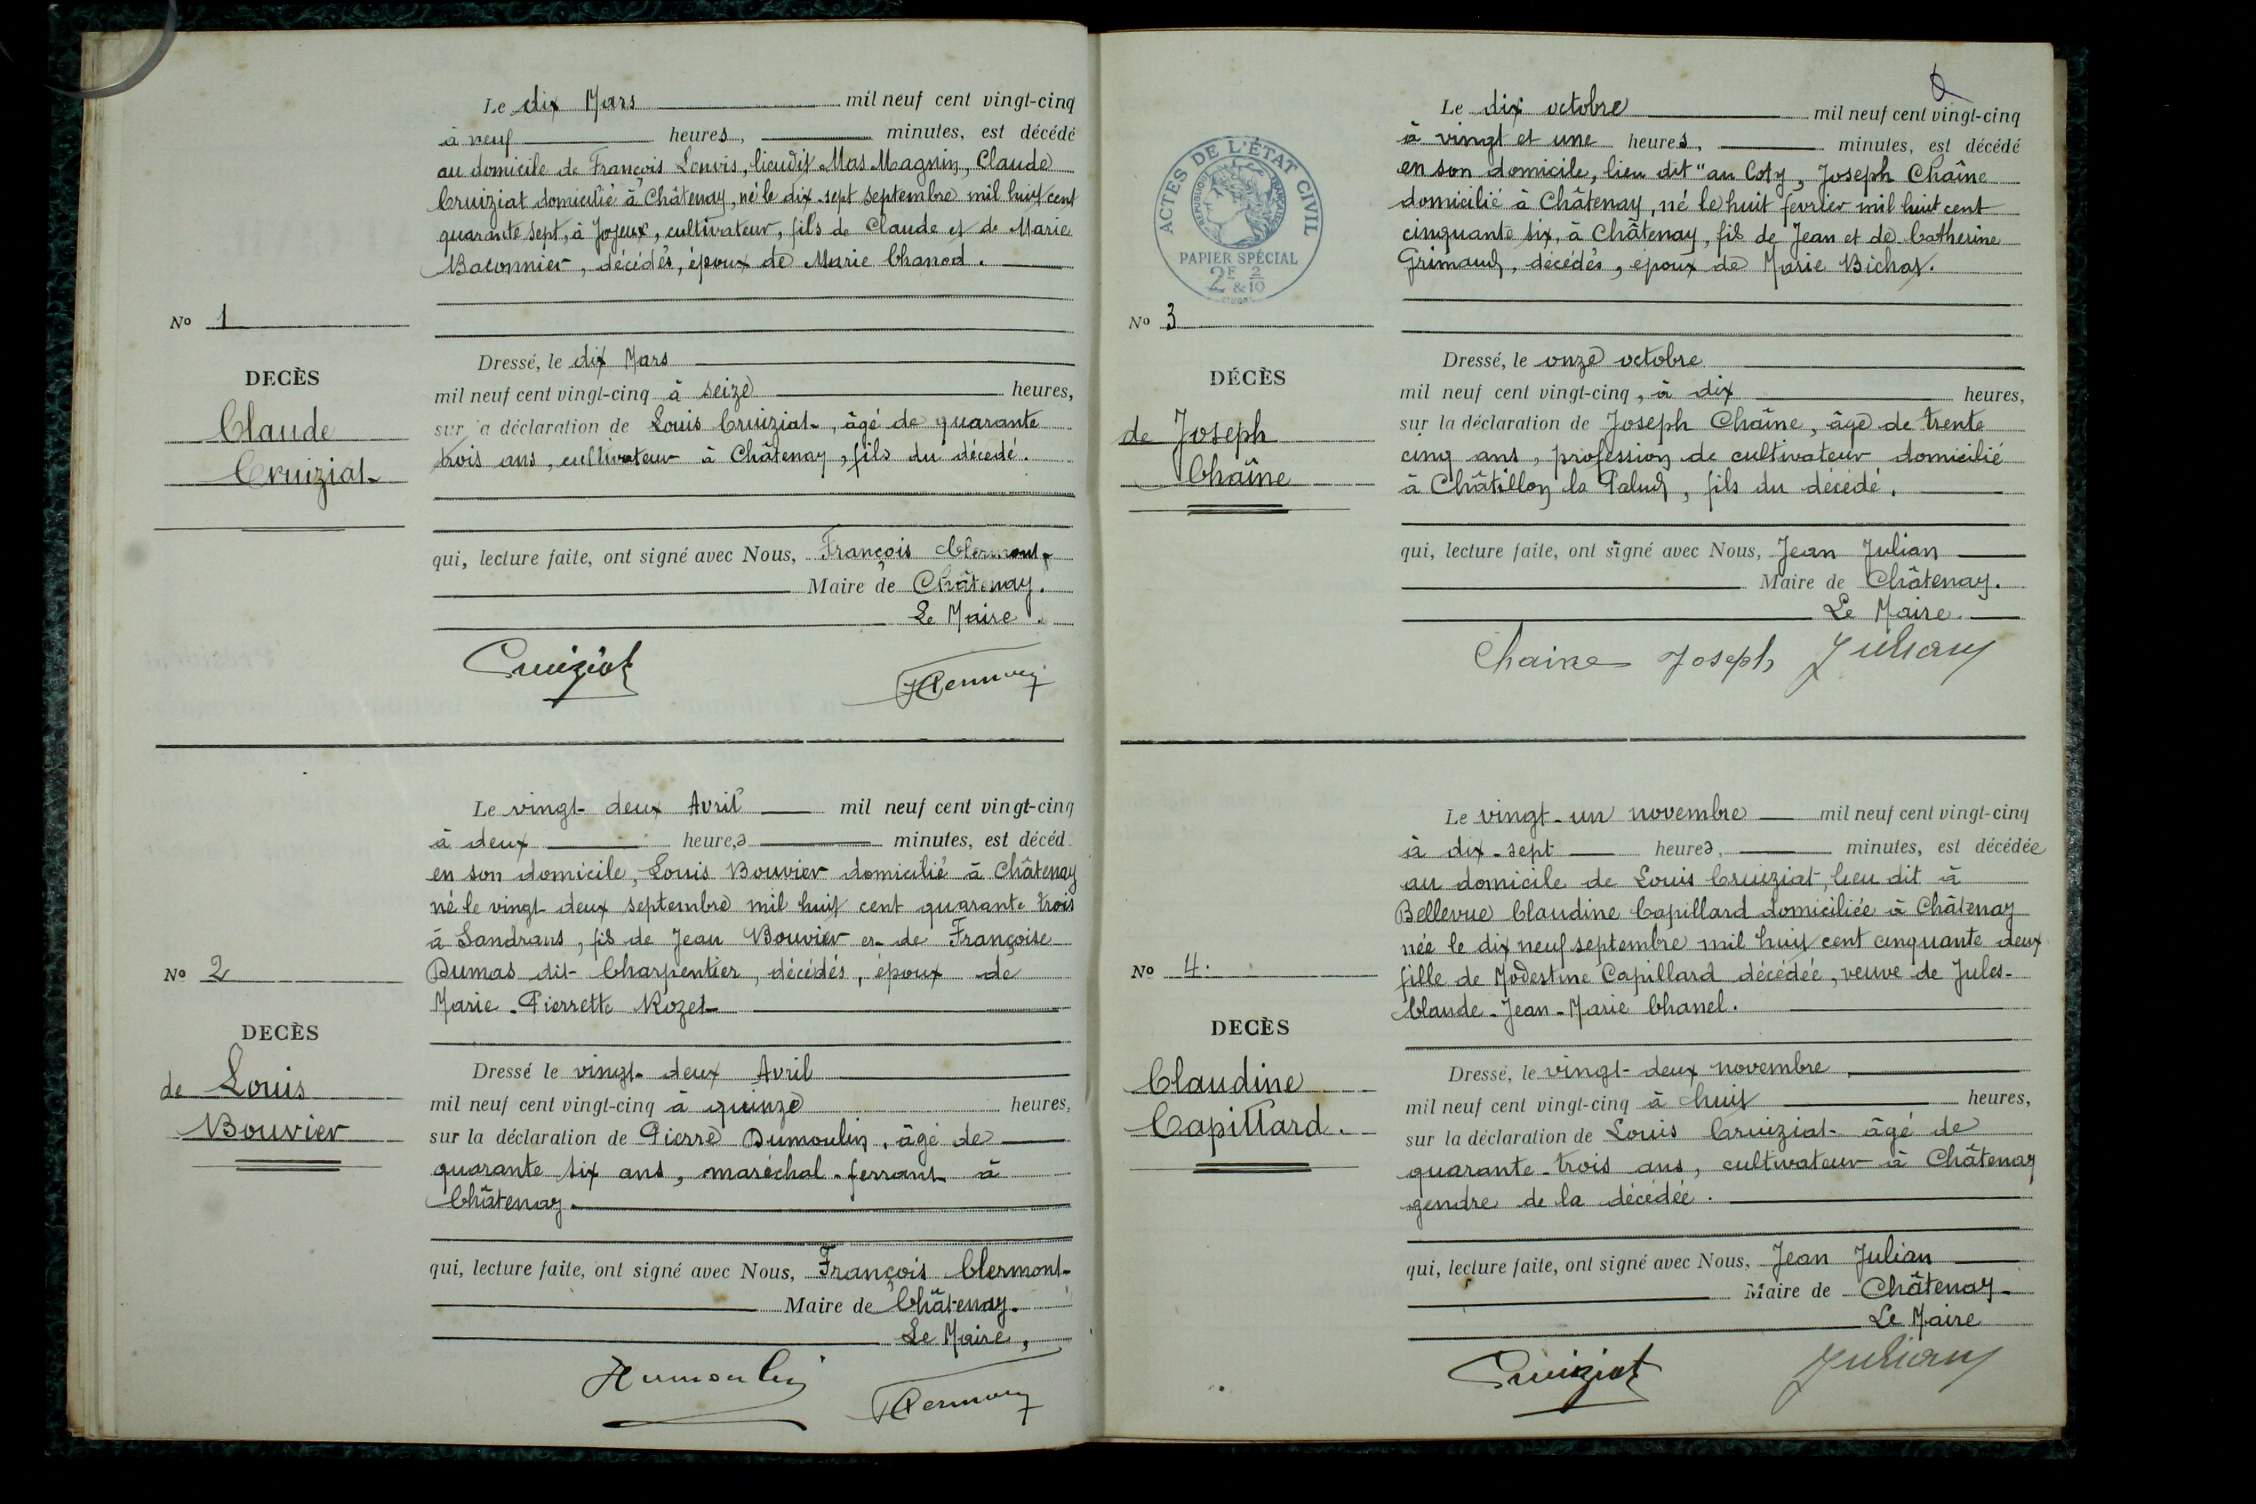 Le dix Mars mil neuf cent vingt-cinq
à neuf heures, minutes, est décédé
au domicile de François Lonvis, lieudit Mas Magnin, Claude
Cruiziat domicilié à Châtenay, né le dix-sept septembre mil huit cent
quarante sept, à Joyeux, cultivateur, fils de Claude et de Marie
Baconnier, décédés, époux de Marie Chanod.
No 1
DECÈS
Claude
Cruiziat
Dressé, le dix Mars
mil neuf cent vingt-cinq à seize heures,
sur a déclaration de Louis Cruiziat, âgé de quarante
trois ans, cultivateur à Châtenay, fils du décédé.
qui, lecture faite, ont signé avec Nous, François Clermont,
Maire de Châtenay.
Le Maire.
Cruiziat
Clermont
Le vingt-deux Avril mil neuf cent vingt-cinq
à deux heures minutes, est décéd
en son domicile, Louis Bouvier domicilié à Châtenay
né le vingt-deux septembre mil huit cent quarante trois
à Sandrans, fils de Jean Bouvier et de Françoise
Dumas dit Charpentier, décédés, époux de
Marie-Pierrette Rozet
No 2
DECÈS
de Louis
Bouvier
Dressé le vingt-deux Avril
mil neuf cent vingt-cinq à quinze heures,
sur la déclaration de Pierre Dumoulin, âgé de
quarante six ans, maréchal-ferrant à
Châtenay.
qui, lecture faite, ont signé avec Nous, François Clermont
Maire de Châtenay.
Le Maire,
Dumoulin
Clermont
6
ACTES DE L'ÉTAT CIVIL
RÉPUBLIQUE FRANÇAISE
PAPIER SPÉCIAL
2F & 2/10
Le dix octobre mil neuf cent vingt-cinq
à vingt et une heures, minutes, est décédé
en son domicile, lieu dit "au Coty, Joseph Chaîne
domicilié à Châtenay, né le huit février mil huit cent
cinquante six, à Châtenay, fils de Jean et de Catherine
Grimaud, décédés, epoux de Marie Bichat.
No 3
DÉCÈS
de Joseph
Chaîne
Dressé, le onze octobre
mil neuf cent vingt-cinq, à dix heures,
sur la déclaration de Joseph Chaîne, âgé de trente
cinq ans, profession de cultivateur domicilié
à Châtillon la Palud, fils du décédé.
qui, lecture faite, ont signé avec Nous, Jean Julian
Maire de Châtenay.
Le Maire.
Chaine Joseph Julian
Le vingt-un novembre mil neuf cent vingt-cinq
à dix-sept heures, minutes, est décédée
au domicile de Louis Cruiziat, lieu dit à
Bellevue Claudine Capillard domiciliée à Châtenay
née le dix neuf septembre mil huit cent cinquante deux
fille de Modestine Capillard décédée, veuve de Jules-
Claude-Jean-Marie Chanel.
No 4.
DECÈS
Claudine
Capillard.
Dressé, le vingt-deux novembre
mil neuf cent vingt-cinq à huit heures,
sur la déclaration de Louis Cruiziat âgé de
quarante-trois ans, cultivateur à Châtenay
gendre de la décédée.
qui, lecture faite, ont signé avec Nous, Jean Julian
Maire de Châtenay
Le Maire
Cruiziat
Julian